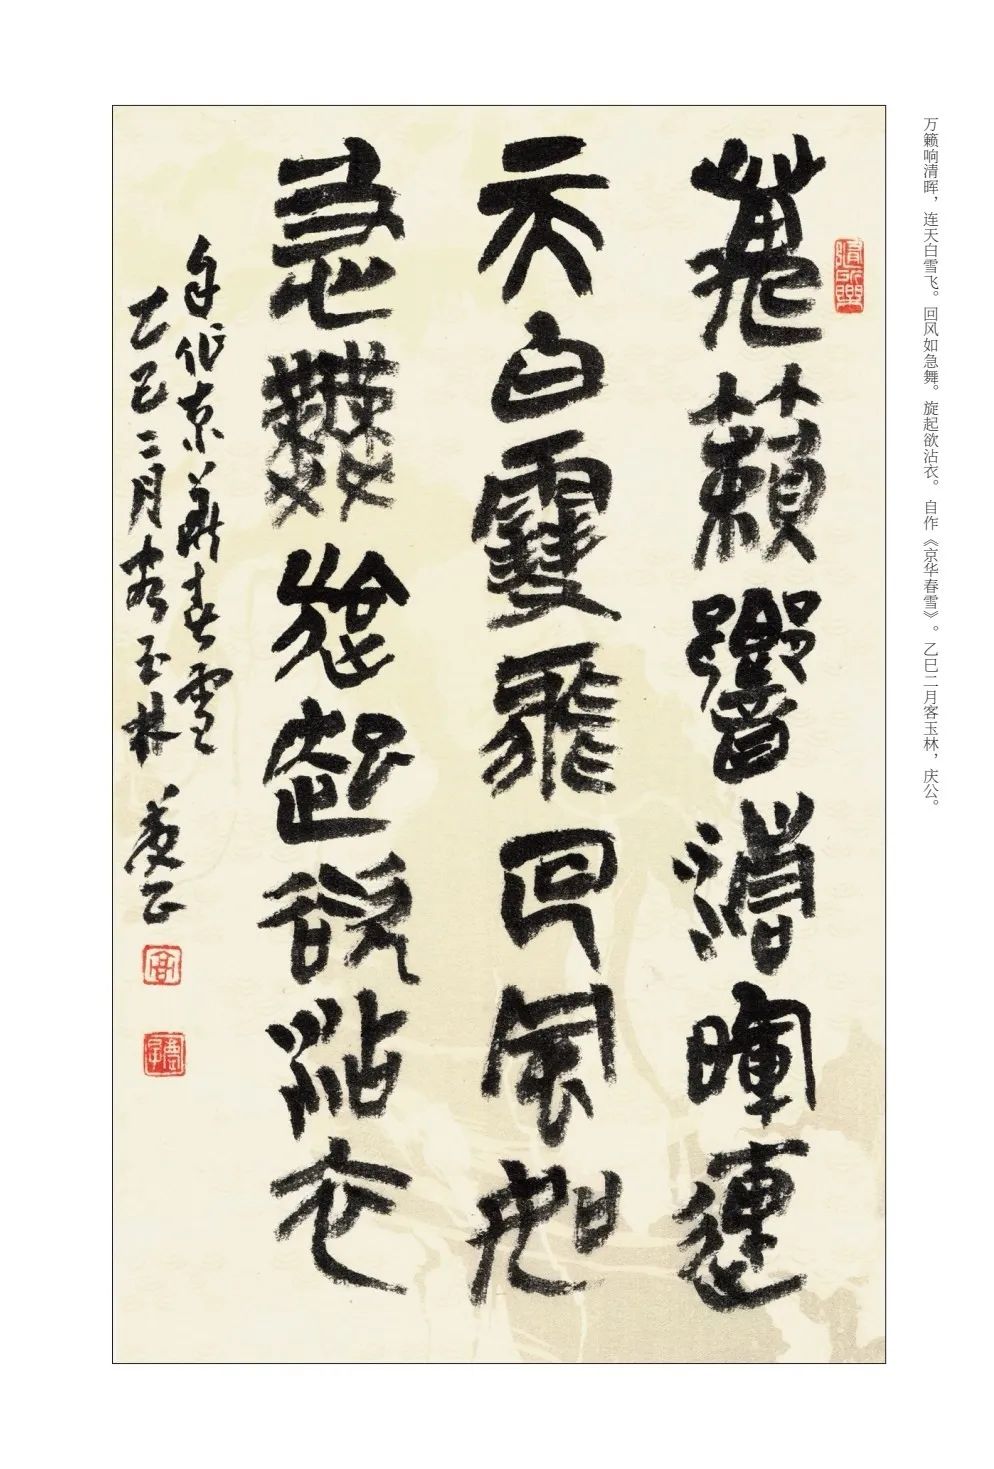 万籁响清晖，连天白雪飞。回风如急舞。旋起欲沾衣。 自作《京华春雪》。乙巳二月客玉林，庆公。
萬籟響清暉連
天白雪飛回風如
急舞旋起欲沾衣
自作京華春雪
乙巳二月客玉林 慶公